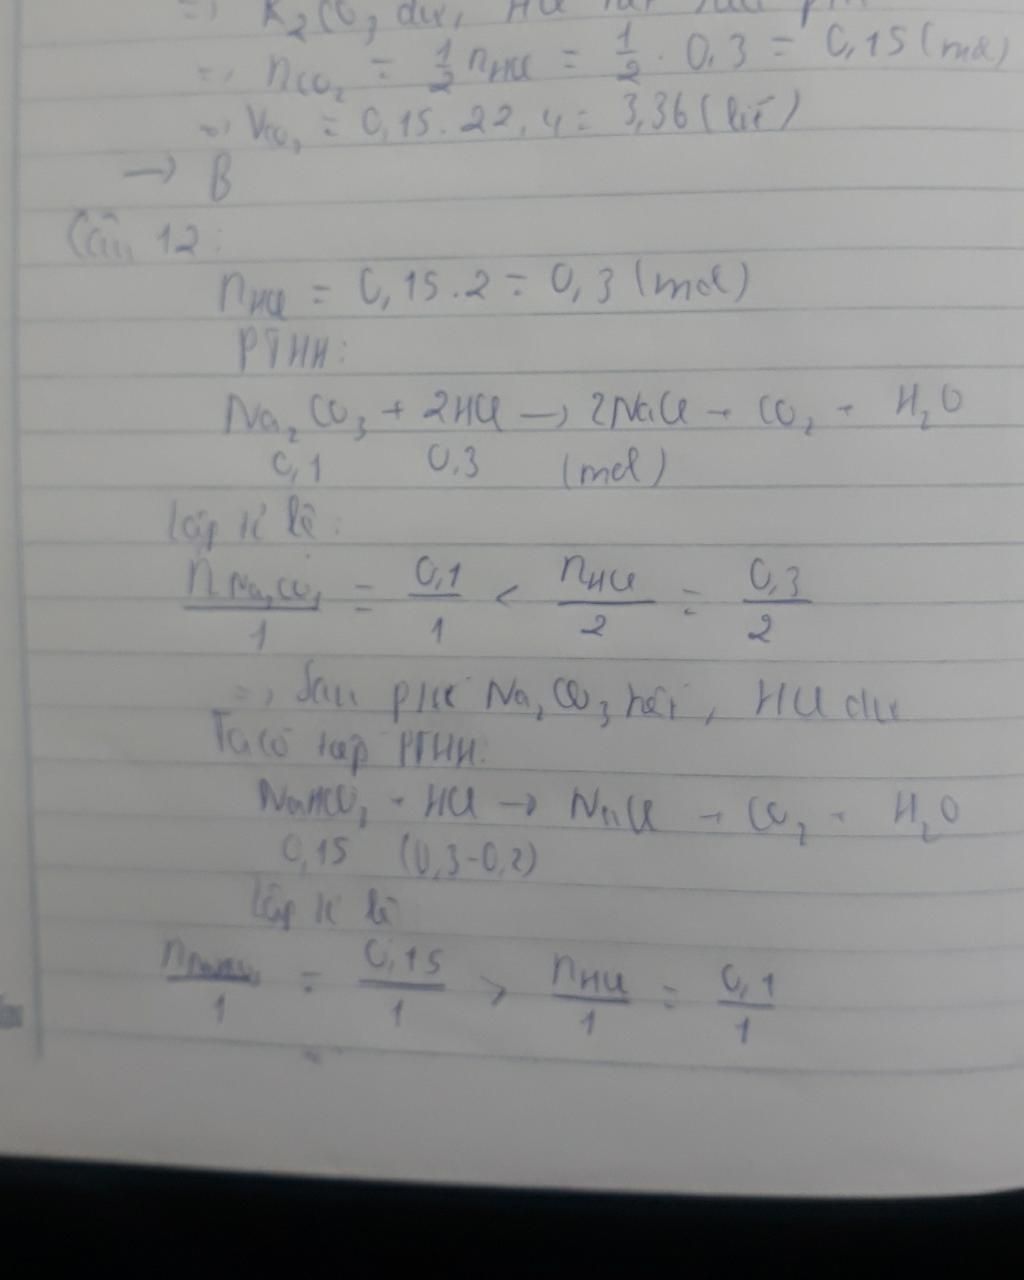 => K₂CO₃ dư, HCl
=> nCO₂ = 1/2 nHCl = 1/2 . 0,3 = 0,15 (mol)
=> VCO₂ = 0,15 . 22,4 = 3,36 (lít)
→ B
Câu 12:
nHCl = 0,15 . 2 = 0,3 (mol)
PTHH:
Na₂CO₃ + 2HCl → 2NaCl + CO₂ + H₂O
0,1 0,3 (mol)
Lập tỉ lệ:
nNa₂CO₃/1 = 0,1/1 < nHCl/2 = 0,3/2
=> Sau pứ Na₂CO₃ hết, HCl dư
Ta có tiếp PTHH:
NaHCO₃ + HCl → NaCl + CO₂ + H₂O
0,15 (0,3-0,2)
Lập tỉ lệ
nNaHCO₃/1 = 0,15/1 > nHCl/1 = 0,1/1